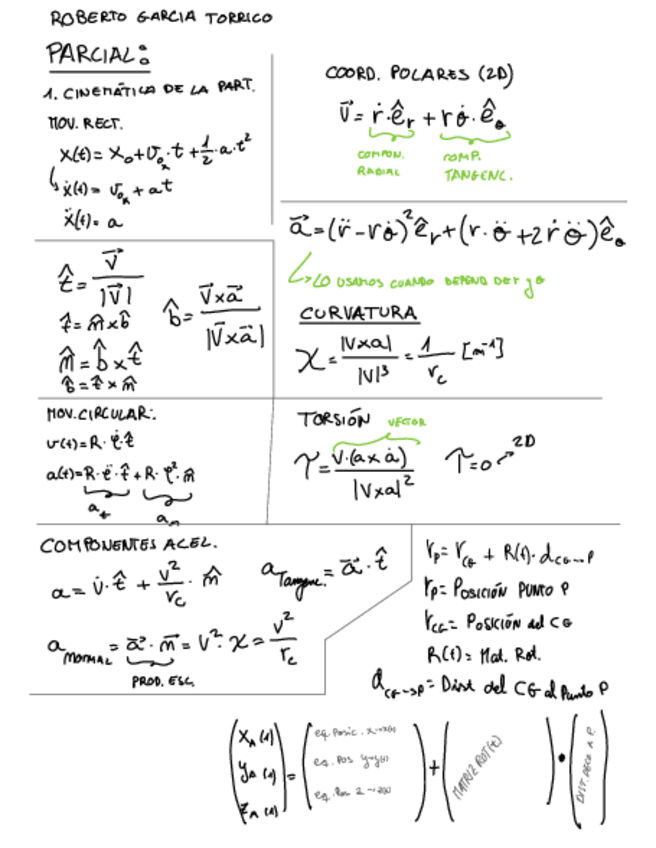 ROBERTO GARCIA TORRICO
PARCIAL:
1. CINEMÁTICA DE LA PART.
MOV. RECT.
x(t) = x₀ + v₀ₓ·t + 1/2·a·t²
ẋ(t) = v₀ₓ + at
ẍ(t) = a
COORD. POLARES (2D)
v⃗ = ṙ·ê_r + rθ̇·ê_θ
COMPON. RADIAL
COMP. TANGENC.
a⃗ = (r̈ - rθ̇)² ê_r + (r·θ̈ + 2ṙθ̈) ê_θ
LO USAMOS CUANDO DEPEND DE r y θ
t̂ = v⃗ / |v⃗|
t̂ = m̂ x b̂
m̂ = b̂ x t̂
b̂ = t̂ x m̂
b̂ = v⃗ x a⃗ / |v⃗ x a⃗|
CURVATURA
χ = |v x a| / |v|³ = 1 / r_c [m⁻¹]
MOV. CIRCULAR:
v(t) = R·φ̇·t̂
a(t) = R·φ̈·t̂ + R·φ̇²·m̂
a_t
a_n
TORSIÓN
VECTOR
τ = v·(a x ȧ) / |v x a|²
τ = 0 → 2D
COMPONENTES ACEL.
a = v̇·t̂ + v²/r_c · m̂
a_Tangenc. = a⃗·t̂
a_NORMAL = a⃗·m⃗ = v²·χ = v²/r_c
PROD. ESC.
r_P = r_CG + R(t)·d_CG→P
r_P = POSICIÓN PUNTO P
r_CG = POSICIÓN del CG
R(t) = Mat. Rot.
d_CG→P = Dist del CG al Punto P
x_A(t)
y_A(t)
z_A(t)
=
eq. Posic. x→x(t)
eq. Pos y→y(t)
eq. Pos z→z(t)
+
MATRIZ ROT(t)
•